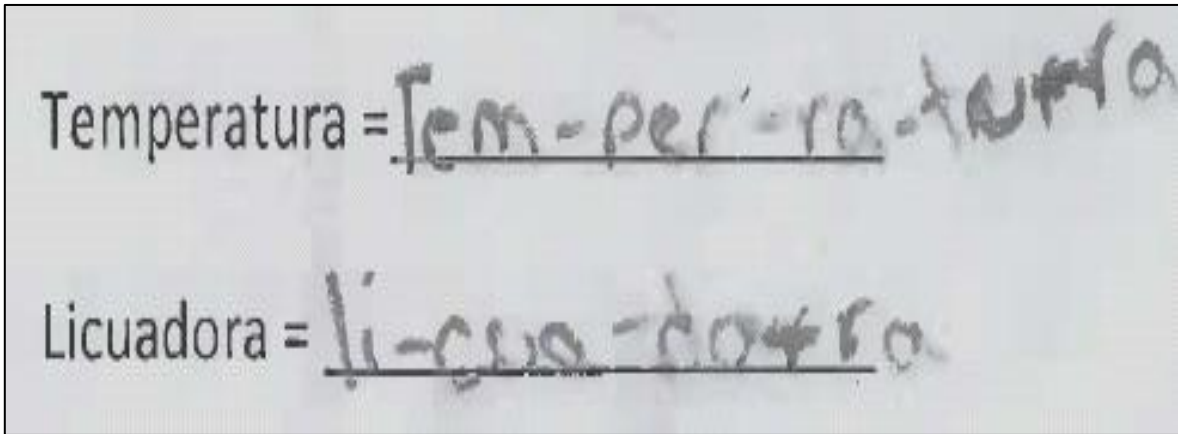 Temperatura = Tem-per-ra-tu-ra
Licuadora = li-cua-do-ra